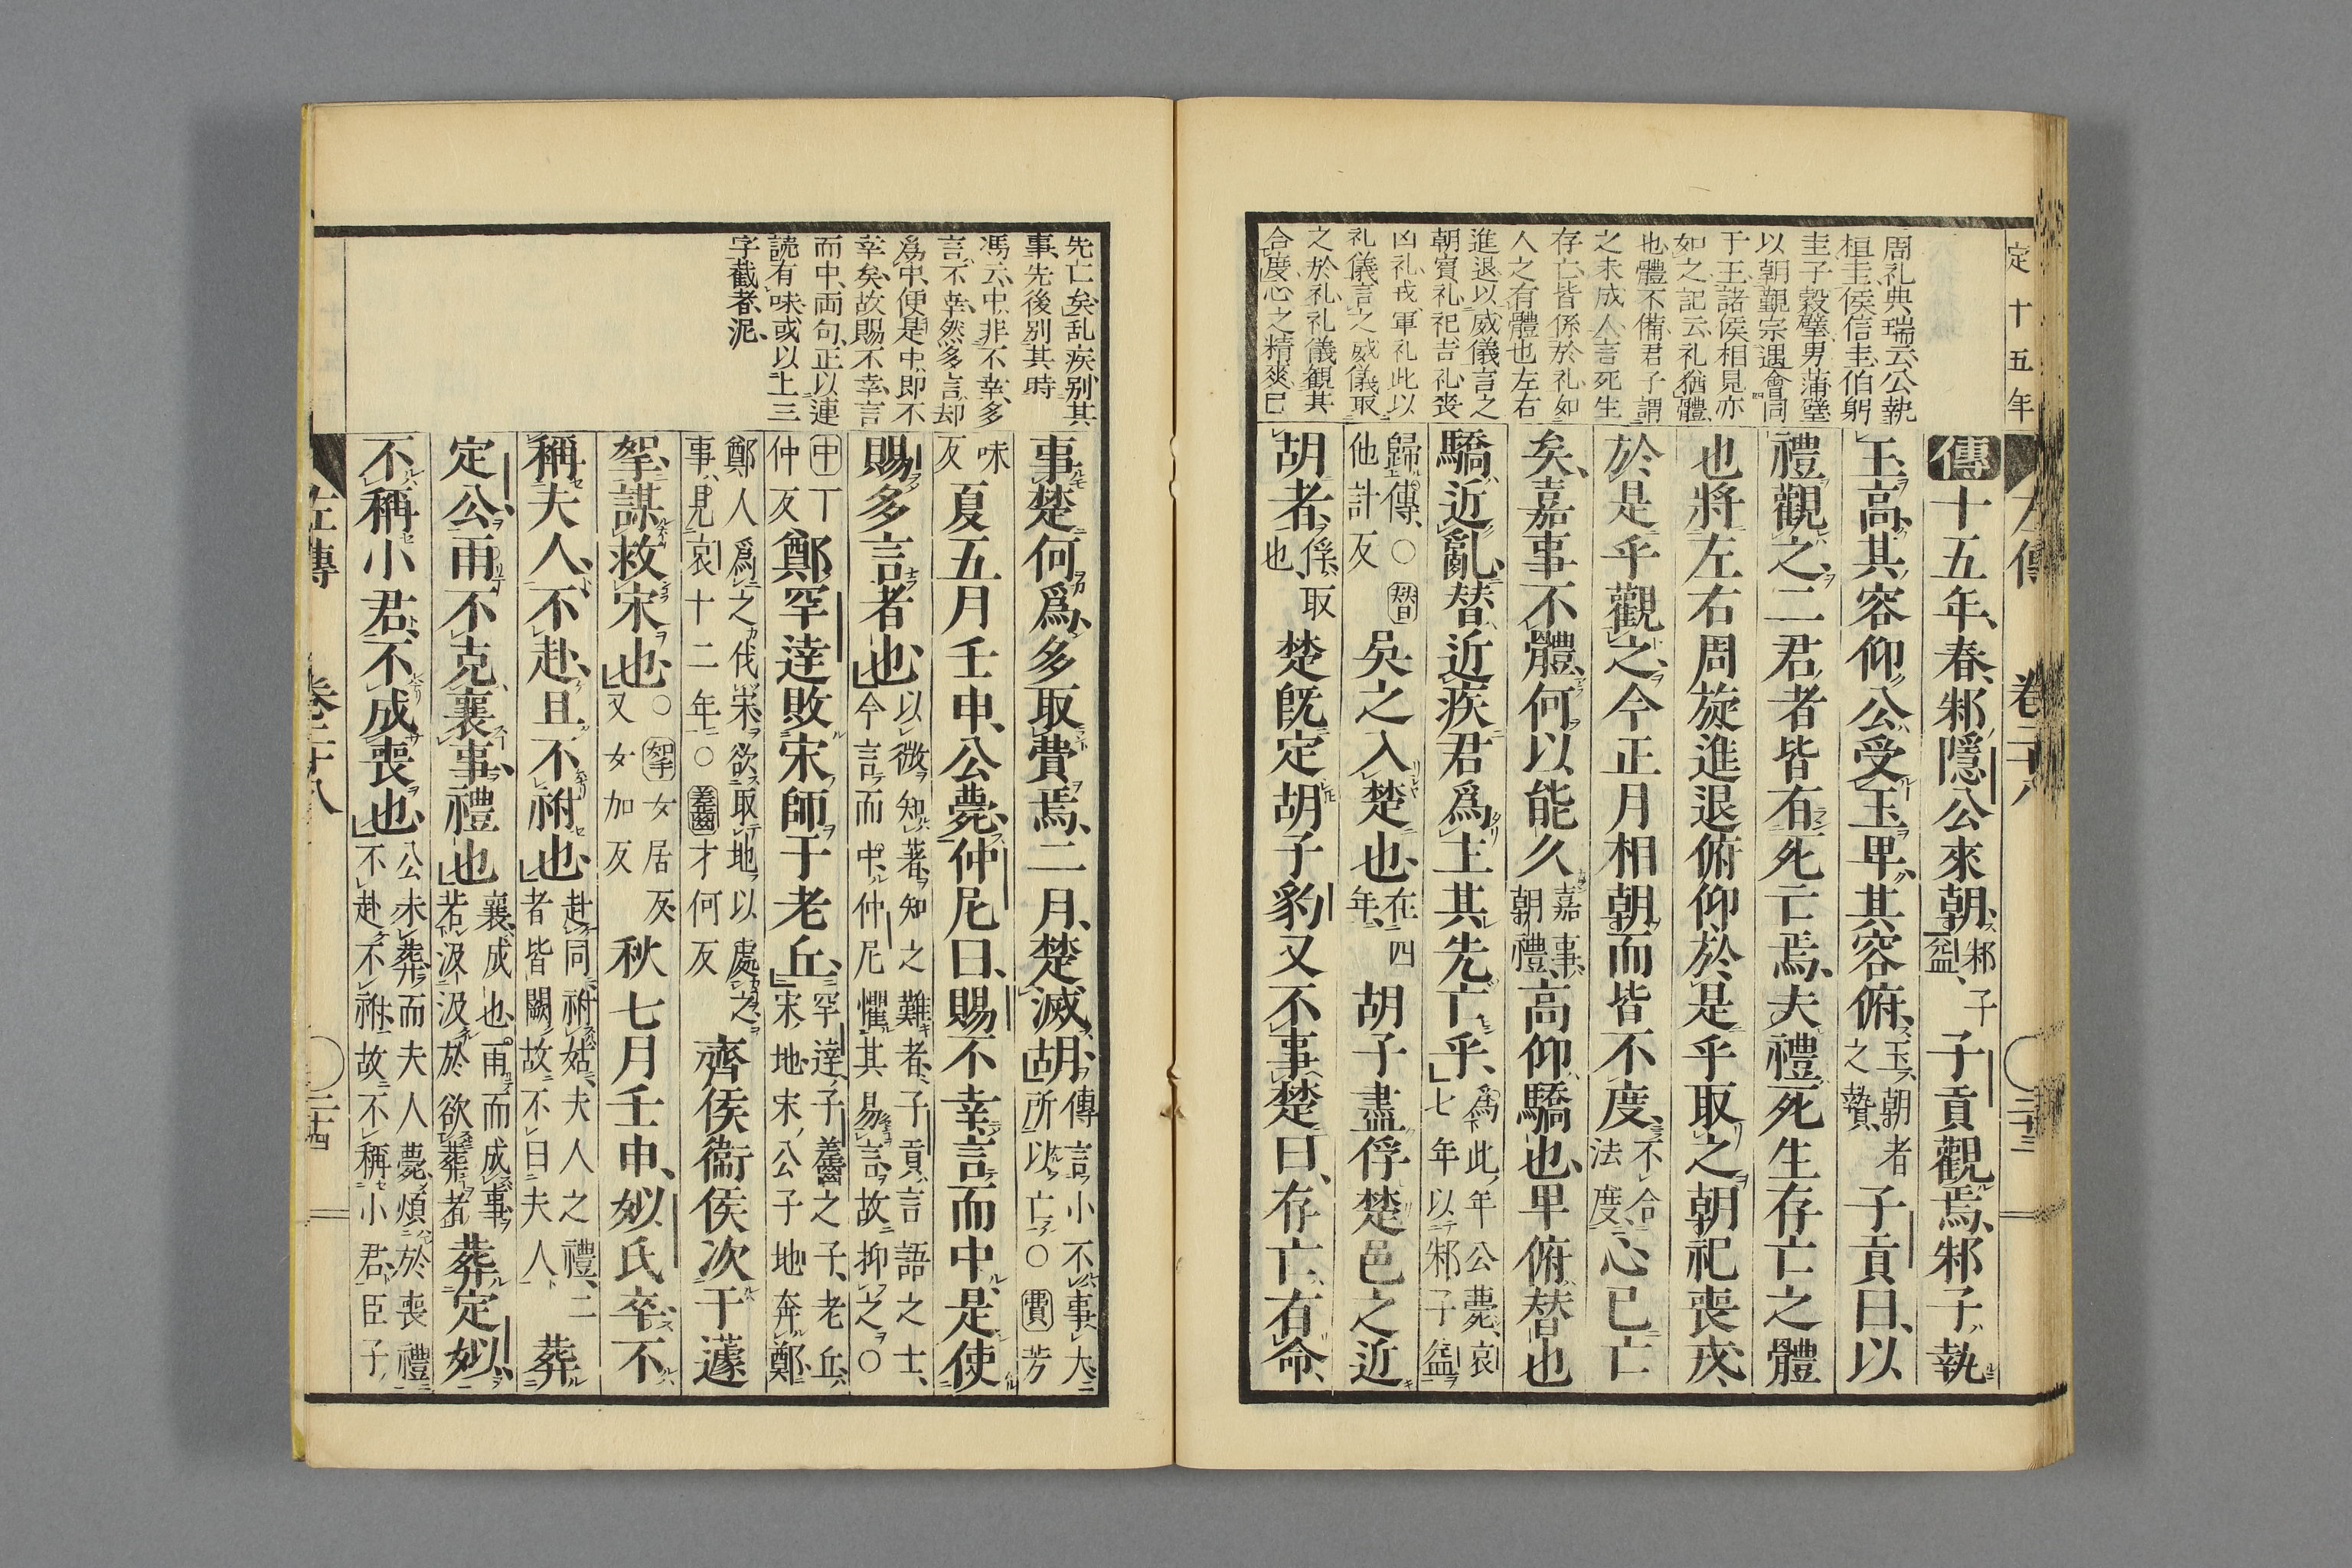 定十五年
左傳 卷二十八 二十三
周礼典瑞云公執
桓圭侯信圭伯躬
圭子穀璧男蒲璧
以朝覲宗遇會同
于王諸侯相見亦
如之記云礼猶體
也體不備君子謂
之未成人言死生
存亡皆係於礼如
人之有體也左右
進退以威儀言之
朝賓礼祀吉礼喪
凶礼戎軍礼此以
礼儀言之威儀取
之於礼礼儀観其
合度心之精爽已
傳十五年、春、邾隱公來朝、邾子益、子貢觀焉、邾子執
玉、高其容仰、公受玉卑、其容俯、玉朝者之贄、子貢曰、以
禮觀之、二君者皆有死亡焉、夫禮死生存亡之體
也將左右周旋進退俯仰於是乎取之朝祀喪戎、
於是乎觀之、今正月相朝、而皆不度、不合法度、心已亡
矣、嘉事不體、何以能久嘉事、朝禮、高仰、驕也、卑俯、替也
驕近亂、替近疾君爲主其先亡乎、爲此年公薨、哀七年以邾子益
歸傳、○替他計反吳之入楚也、在四年、胡子盡俘楚邑之近
胡者、俘、取也楚既定胡子豹又不事楚曰、存亡有命、
先亡矣乱疾别其
事先後别其時
馮云中非不幸多
言不幸然多言却
爲中便是中即不
幸矣故賜不幸言
而中両句正以連
読有味或以上三
字截者泥
事楚何爲、多取費焉、二月、楚滅胡、傳言小不事大所以亡○費芳
味反夏五月壬申、公薨、仲尼曰、賜不幸言而中、是使
賜多言者也、以微知著、知之難者、子貢言語之士、今言而中、仲尼懼其易言、故抑之○
中丁仲反鄭罕達敗宋師于老丘、罕達、子齹之子、老丘、宋地宋公子地奔鄭
鄭人爲之伐宋、欲取地以處之、事見哀十二年○齹才何反齊侯衞侯次于蘧
挐、謀救宋也、○挐女居反、又女加反秋七月壬申、姒氏卒、不
稱夫人、不赴、且不祔也、赴同祔姑、夫人之禮、二者皆闕、故不曰夫人葬
定公、雨不克襄事、禮也襄、成也、雨而成事、若汲汲於欲葬者葬定姒、
不稱小君、不成喪也、公未葬而夫人薨、煩於喪禮不赴不祔、故不稱小君、臣子
左傳 卷二十八 二十四